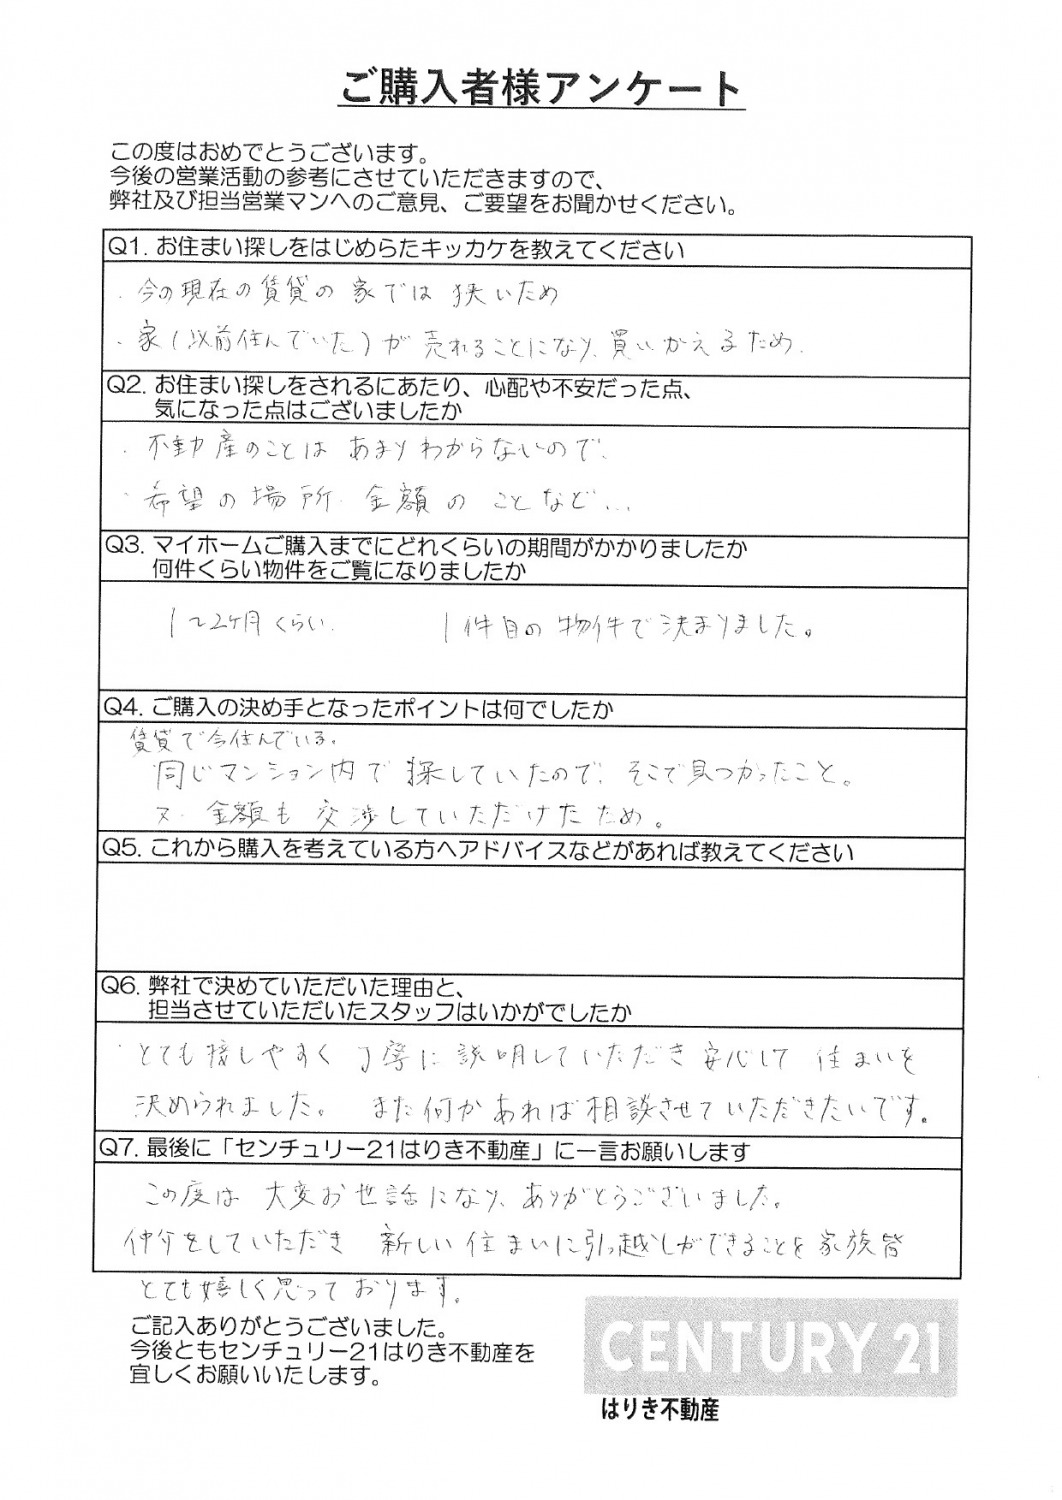 ご購入者様アンケート
この度はおめでとうございます。
今後の営業活動の参考にさせていただきますので、
弊社及び担当営業マンへのご意見、ご要望をお聞かせください。
Q1. お住まい探しをはじめらたキッカケを教えてください
・今の現在の賃貸の家では狭いため
・家(以前住んでいた)が売れることになり、買いかえるため.
Q2. お住まい探しをされるにあたり、心配や不安だった点、
気になった点はございましたか
・不動産のことはあまりわからないので、
・希望の場所・金額のことなど...
Q3. マイホームご購入までにどれくらいの期間がかかりましたか
何件くらい物件をご覧になりましたか
1~2ヶ月くらい. 1件目の物件で決まりました。
Q4. ご購入の決め手となったポイントは何でしたか
賃貸で今住んでいる。
同じマンション内で探していたので、そこで見つかったこと。
又、金額も交渉していただけたため。
Q5. これから購入を考えている方へアドバイスなどがあれば教えてください
Q6. 弊社で決めていただいた理由と、
担当させていただいたスタッフはいかがでしたか
・とても接しやすく丁寧に説明していただき安心して住まいを
決められました。また何かあれば相談させていただきたいです。
Q7. 最後に「センチュリー21はりき不動産」に一言お願いします
この度は大変お世話になり、ありがとうございました。
仲介をしていただき新しい住まいに引っ越しができることを家族皆
とても嬉しく思っております。
ご記入ありがとうございました。
今後ともセンチュリー21はりき不動産を
宜しくお願いいたします。
CENTURY 21
はりき不動産